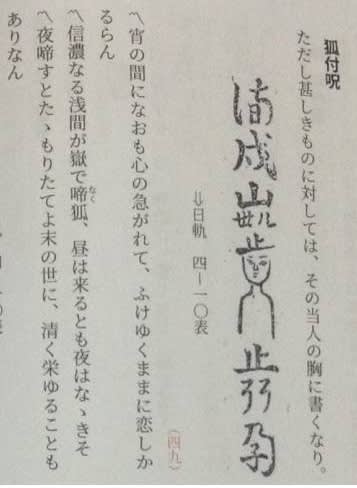 狐付呪
ただし甚しきものに対しては、その当人の胸に書くなり。
⇓日軌　四―一〇表
(四九)
〽宵の間になおも心の急がれて、ふけゆくままに恋しか
るらん
〽信濃なる浅間が嶽で啼狐、昼は来るとも夜はなゝきそ
なく
〽夜啼すとたゝもりたてよ末の世に、清く栄ゆることも
ありなん